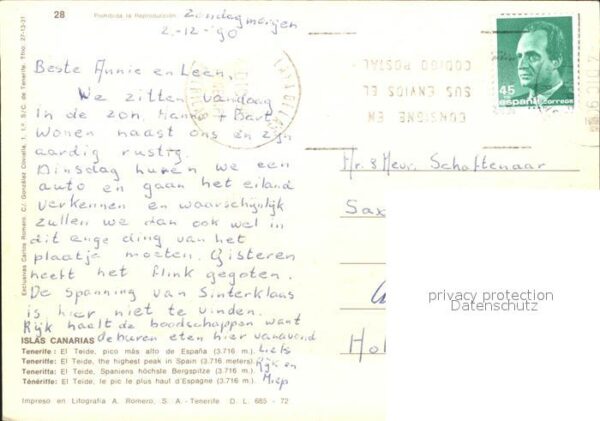 28
Prohibida la Reproducción
Zondagmorgen
2-12-'90
Beste Annie en Leen,
We zitten vandaag
in de zon. Hanna + Bart
wonen naast ons en zijn
aardig rustig.
Dinsdag huren we een
auto en gaan het eiland
verkennen en waarschijnlijk
zullen we dan ook wel in
dit enge ding van het
plaatje moeten. Gisteren
heeft het flink gegoten.
De spanning van Sinterklaas
is hier niet te vinden.
Rijk haalt de boodschappen want
de buren eten hier vanavond
Liefs
Rijk en
Miep
CONSIGNE EN
SUS ENVIOS EL
CODIGO POSTAL
45
españa correos
Mr. & Mevr. Schoftenaar
Sax
Hol
privacy protection
Datenschutz
ISLAS CANARIAS
Tenerife: El Teide, pico más alto de España (3.716 m.)
Tenerife: El Teide, the highest peak in Spain (3.716 meters)
Teneriffa: El Teide, Spaniens höchste Bergspitze (3.716 m.)
Ténériffe: El Teide, le pic le plus haut d'Espagne (3.716 m.)
Impreso en Litografía A. Romero, S. A. - Tenerife D. L. 685 - 72